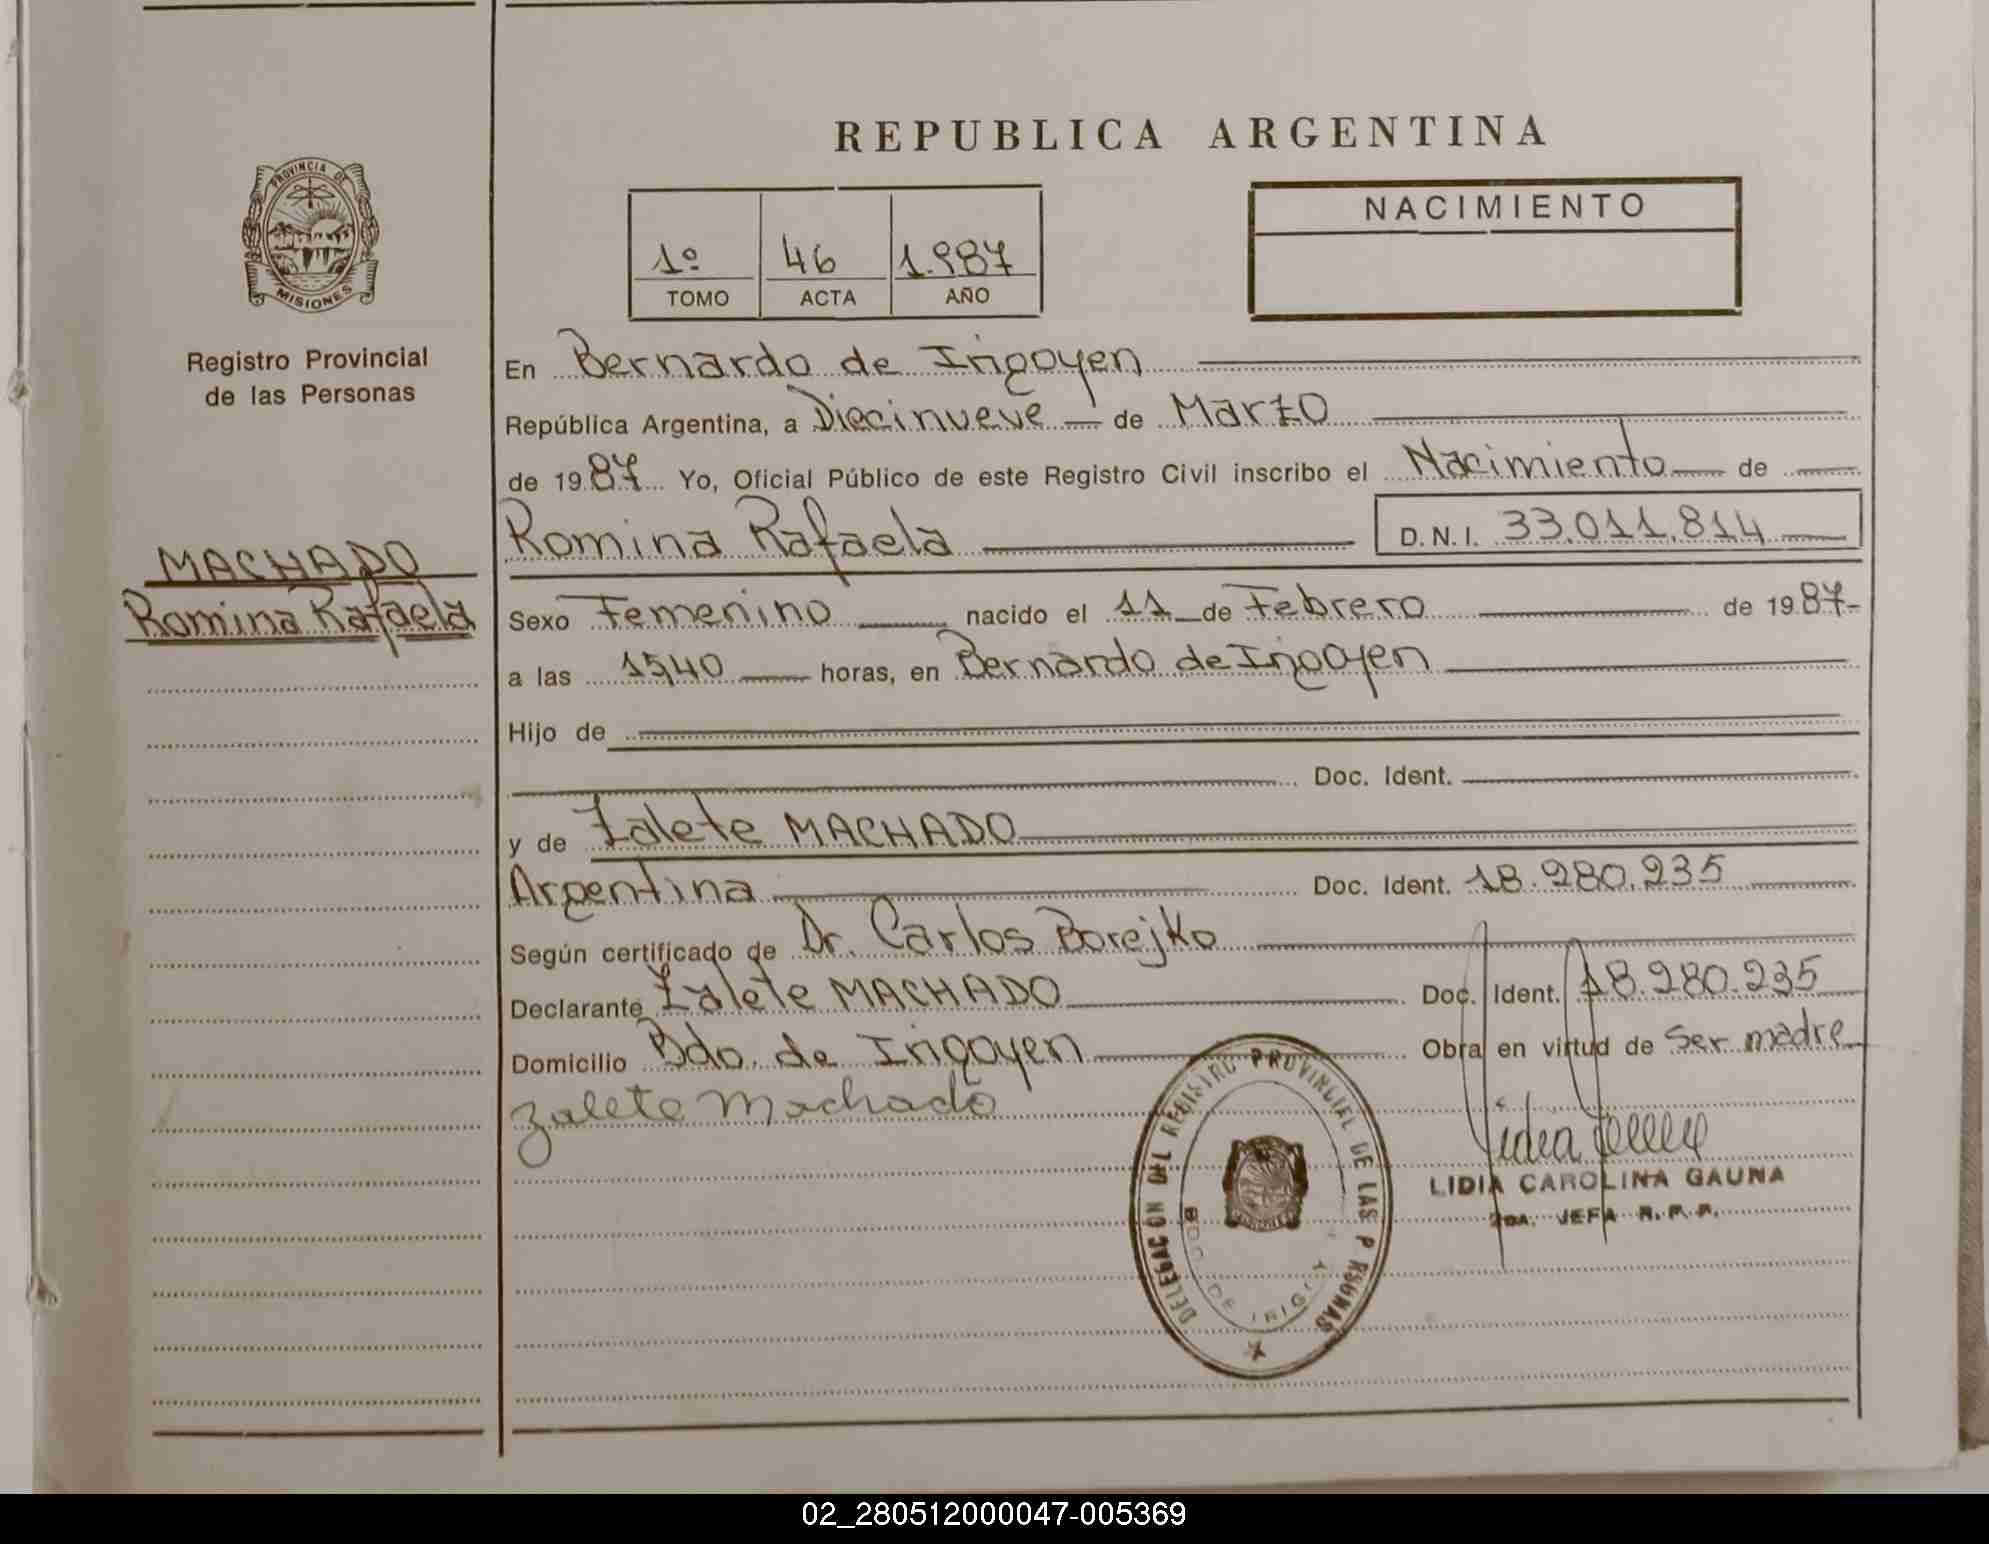 REPUBLICA ARGENTINA
PROVINCIA DE
MISIONES
Registro Provincial
de las Personas
MACHADO
Romina Rafaela
1º 46 1.987
TOMO ACTA AÑO
NACIMIENTO
En Bernardo de Irigoyen
República Argentina, a Diecinueve de Marzo
de 1987 Yo, Oficial Público de este Registro Civil inscribo el Nacimiento de
Romina Rafaela D.N.I. 33.011.814
Sexo Femenino nacido el 11 de Febrero de 1987
a las 15,40 horas, en Bernardo de Irigoyen
Hijo de
Doc. Ident.
y de Zalete MACHADO
Argentina Doc. Ident. 18.280.235
Según certificado de Dr. Carlos Borejko
Declarante Zalete MACHADO Doc. Ident. 18.280.235
Domicilio Bdo. de Irigoyen Obra en virtud de Ser madre
Zalete Machado
DELEGACION DEL REGISTRO PROVINCIEL DE LAS P RSONAS
BDO DE IRIGOY
Lidia
LIDIA CAROLINA GAUNA
2DA. JEFA R.P.P.
02_280512000047-005369